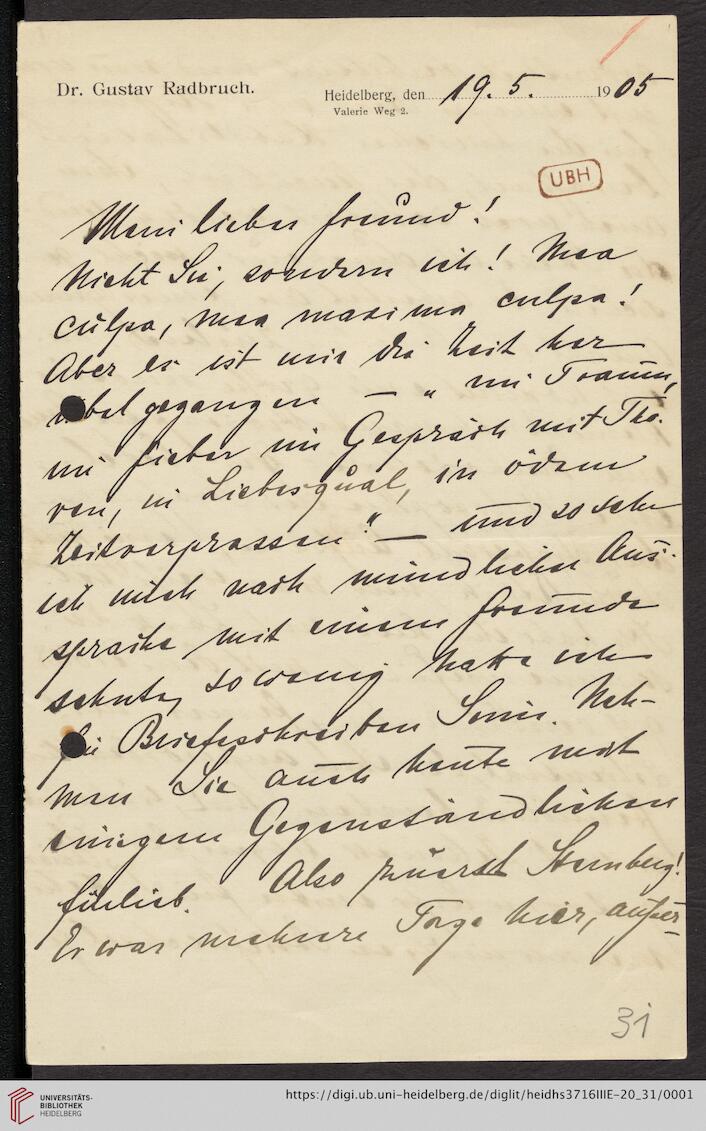 Dr. Gustav Radbruch.
Heidelberg, den 19. 5. 1905
Valerie Weg 2.
UBH
Mein lieber Freund!
Nicht Sie, sondern ich! Mea
culpa, mea maxima culpa!
Aber es ist mir die Zeit her
übel gegangen — „im Traum,
im Fieber, im Gespräch mit Tho-
ren, in Liebesqual, in ödem
Zeitverprassen." — und so sehr
ich mich nach mündlicher Aus-
sprache mit einem Freunde
sehnte, so wenig hatte ich
für Briefeschreiben Sinn. Neh-
men Sie auch heute mit
einigem Gegenständlichen
fürlieb. Also zuerst Sternberg!
Er war mehrere Tage hier, außer-
31
UNIVERSITÄTS-
BIBLIOTHEK
HEIDELBERG
https://digi.ub.uni-heidelberg.de/diglit/heidhs3716IIIE-20_31/0001